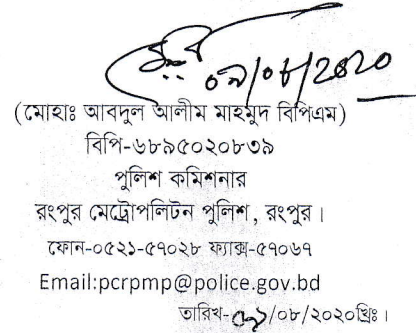 ০৯/০৮/2020
(মোহাঃ আবদুল আলীম মাহমুদ বিপিএম)
বিপি-৬৮৯৫০২০৮৩৯
পুলিশ কমিশনার
রংপুর মেট্রোপলিটন পুলিশ, রংপুর।
ফোন-০৫২১-৫৭০২৮ ফ্যাক্স-৫৭০৬৭
Email:pcrpmp@police.gov.bd
তারিখ-০৯/০৮/২০২০খ্রিঃ।